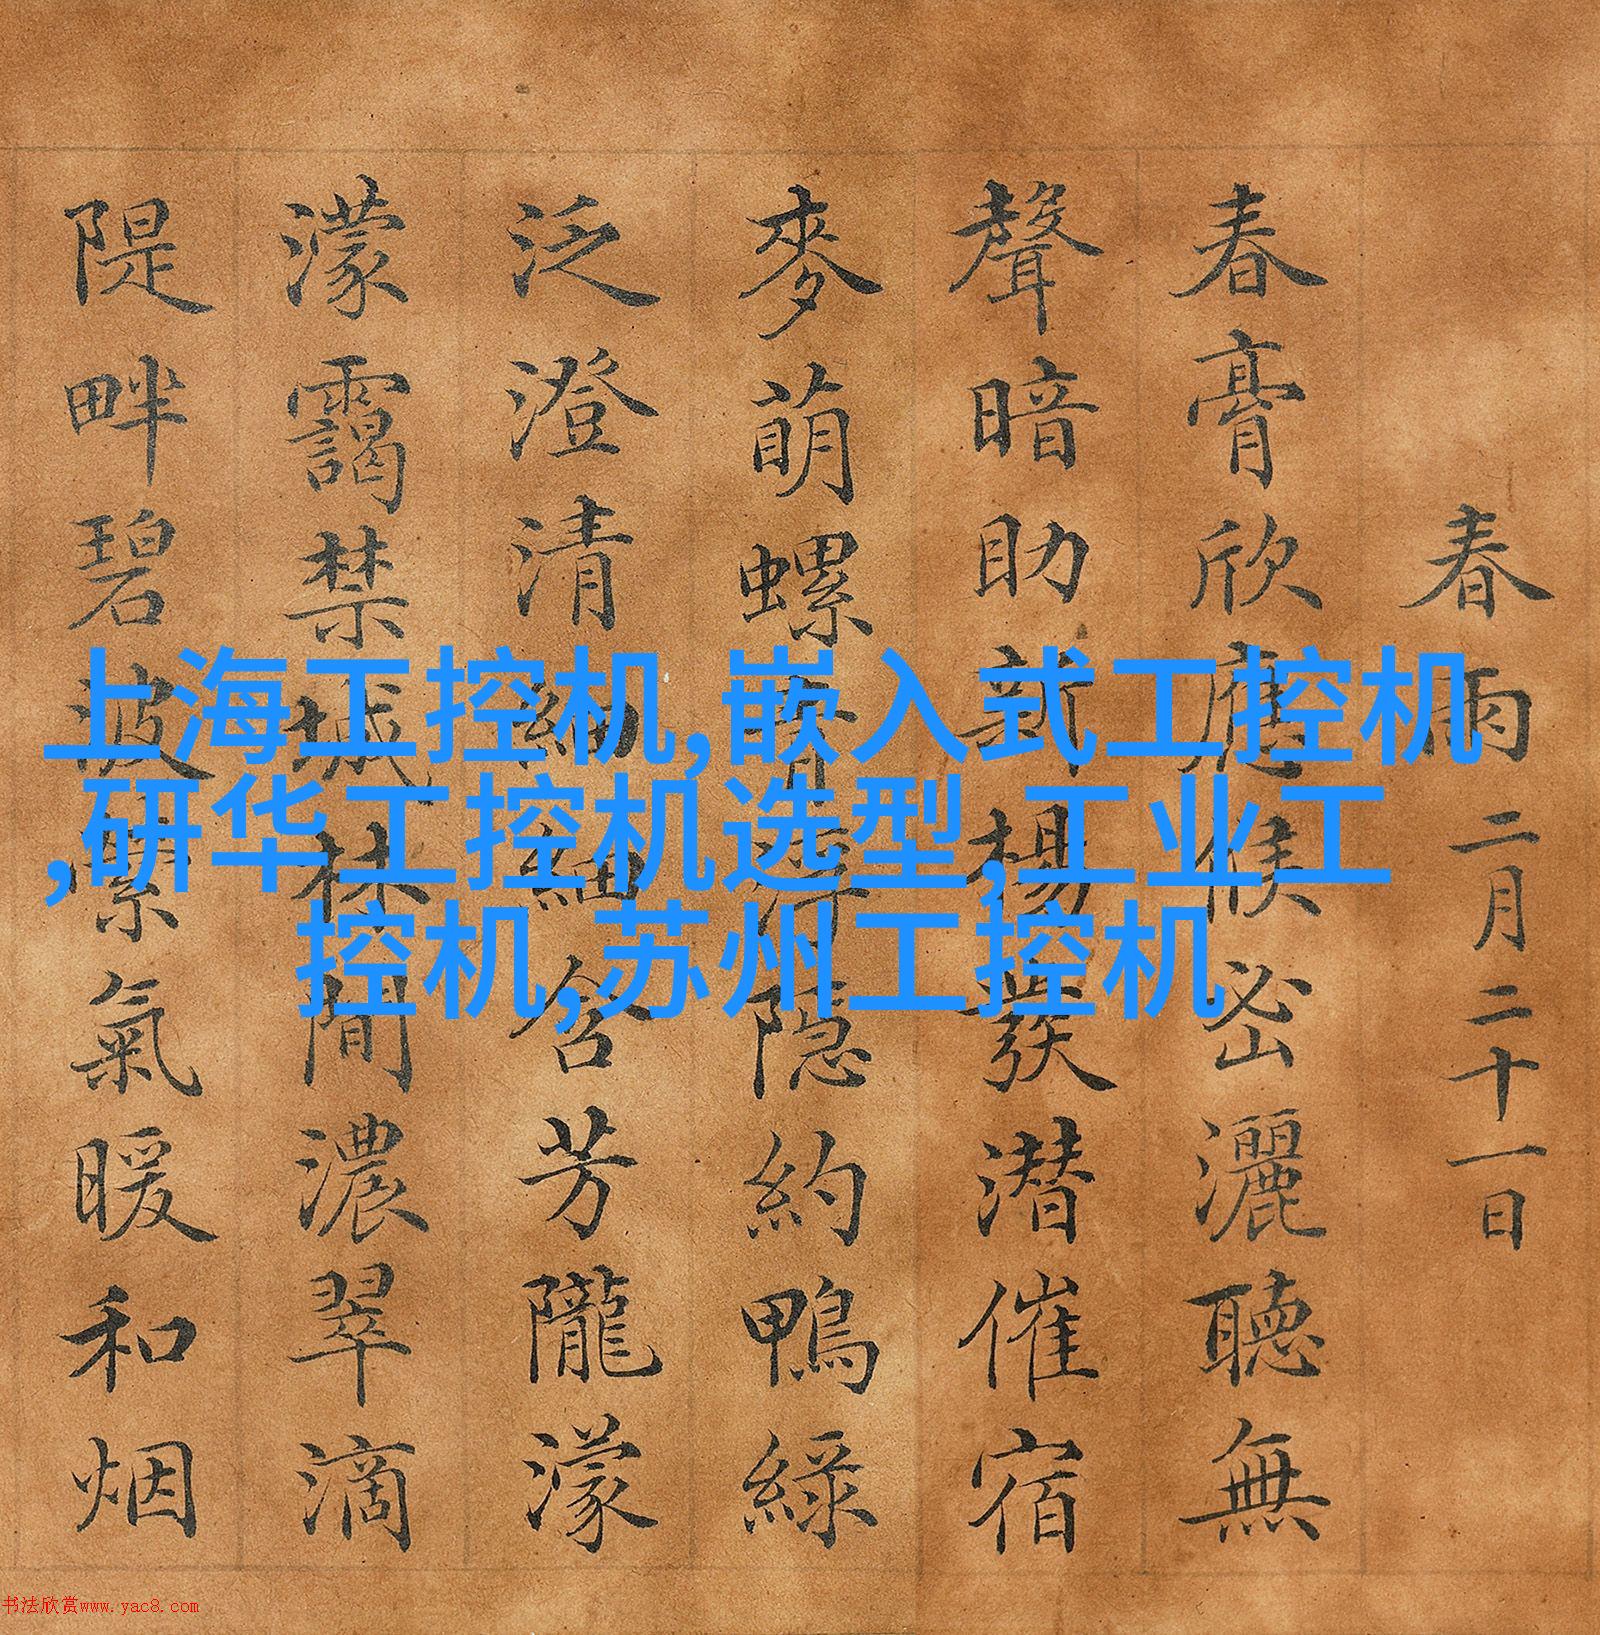 春雨 二月二十一日
春膏欣應候密灑聽無
聲暗助新楊發潜催宿
麥萌螺青浮隐約鴨綠
泛澄清細細含芳隴濛
濛靄禁城林間濃翠滴
隄畔碧波縈氣暖和烟
上海工控机,嵌入式工控机
,研华工控机选型,工业工
控机,苏州工控机
书法欣赏www.yac8.com